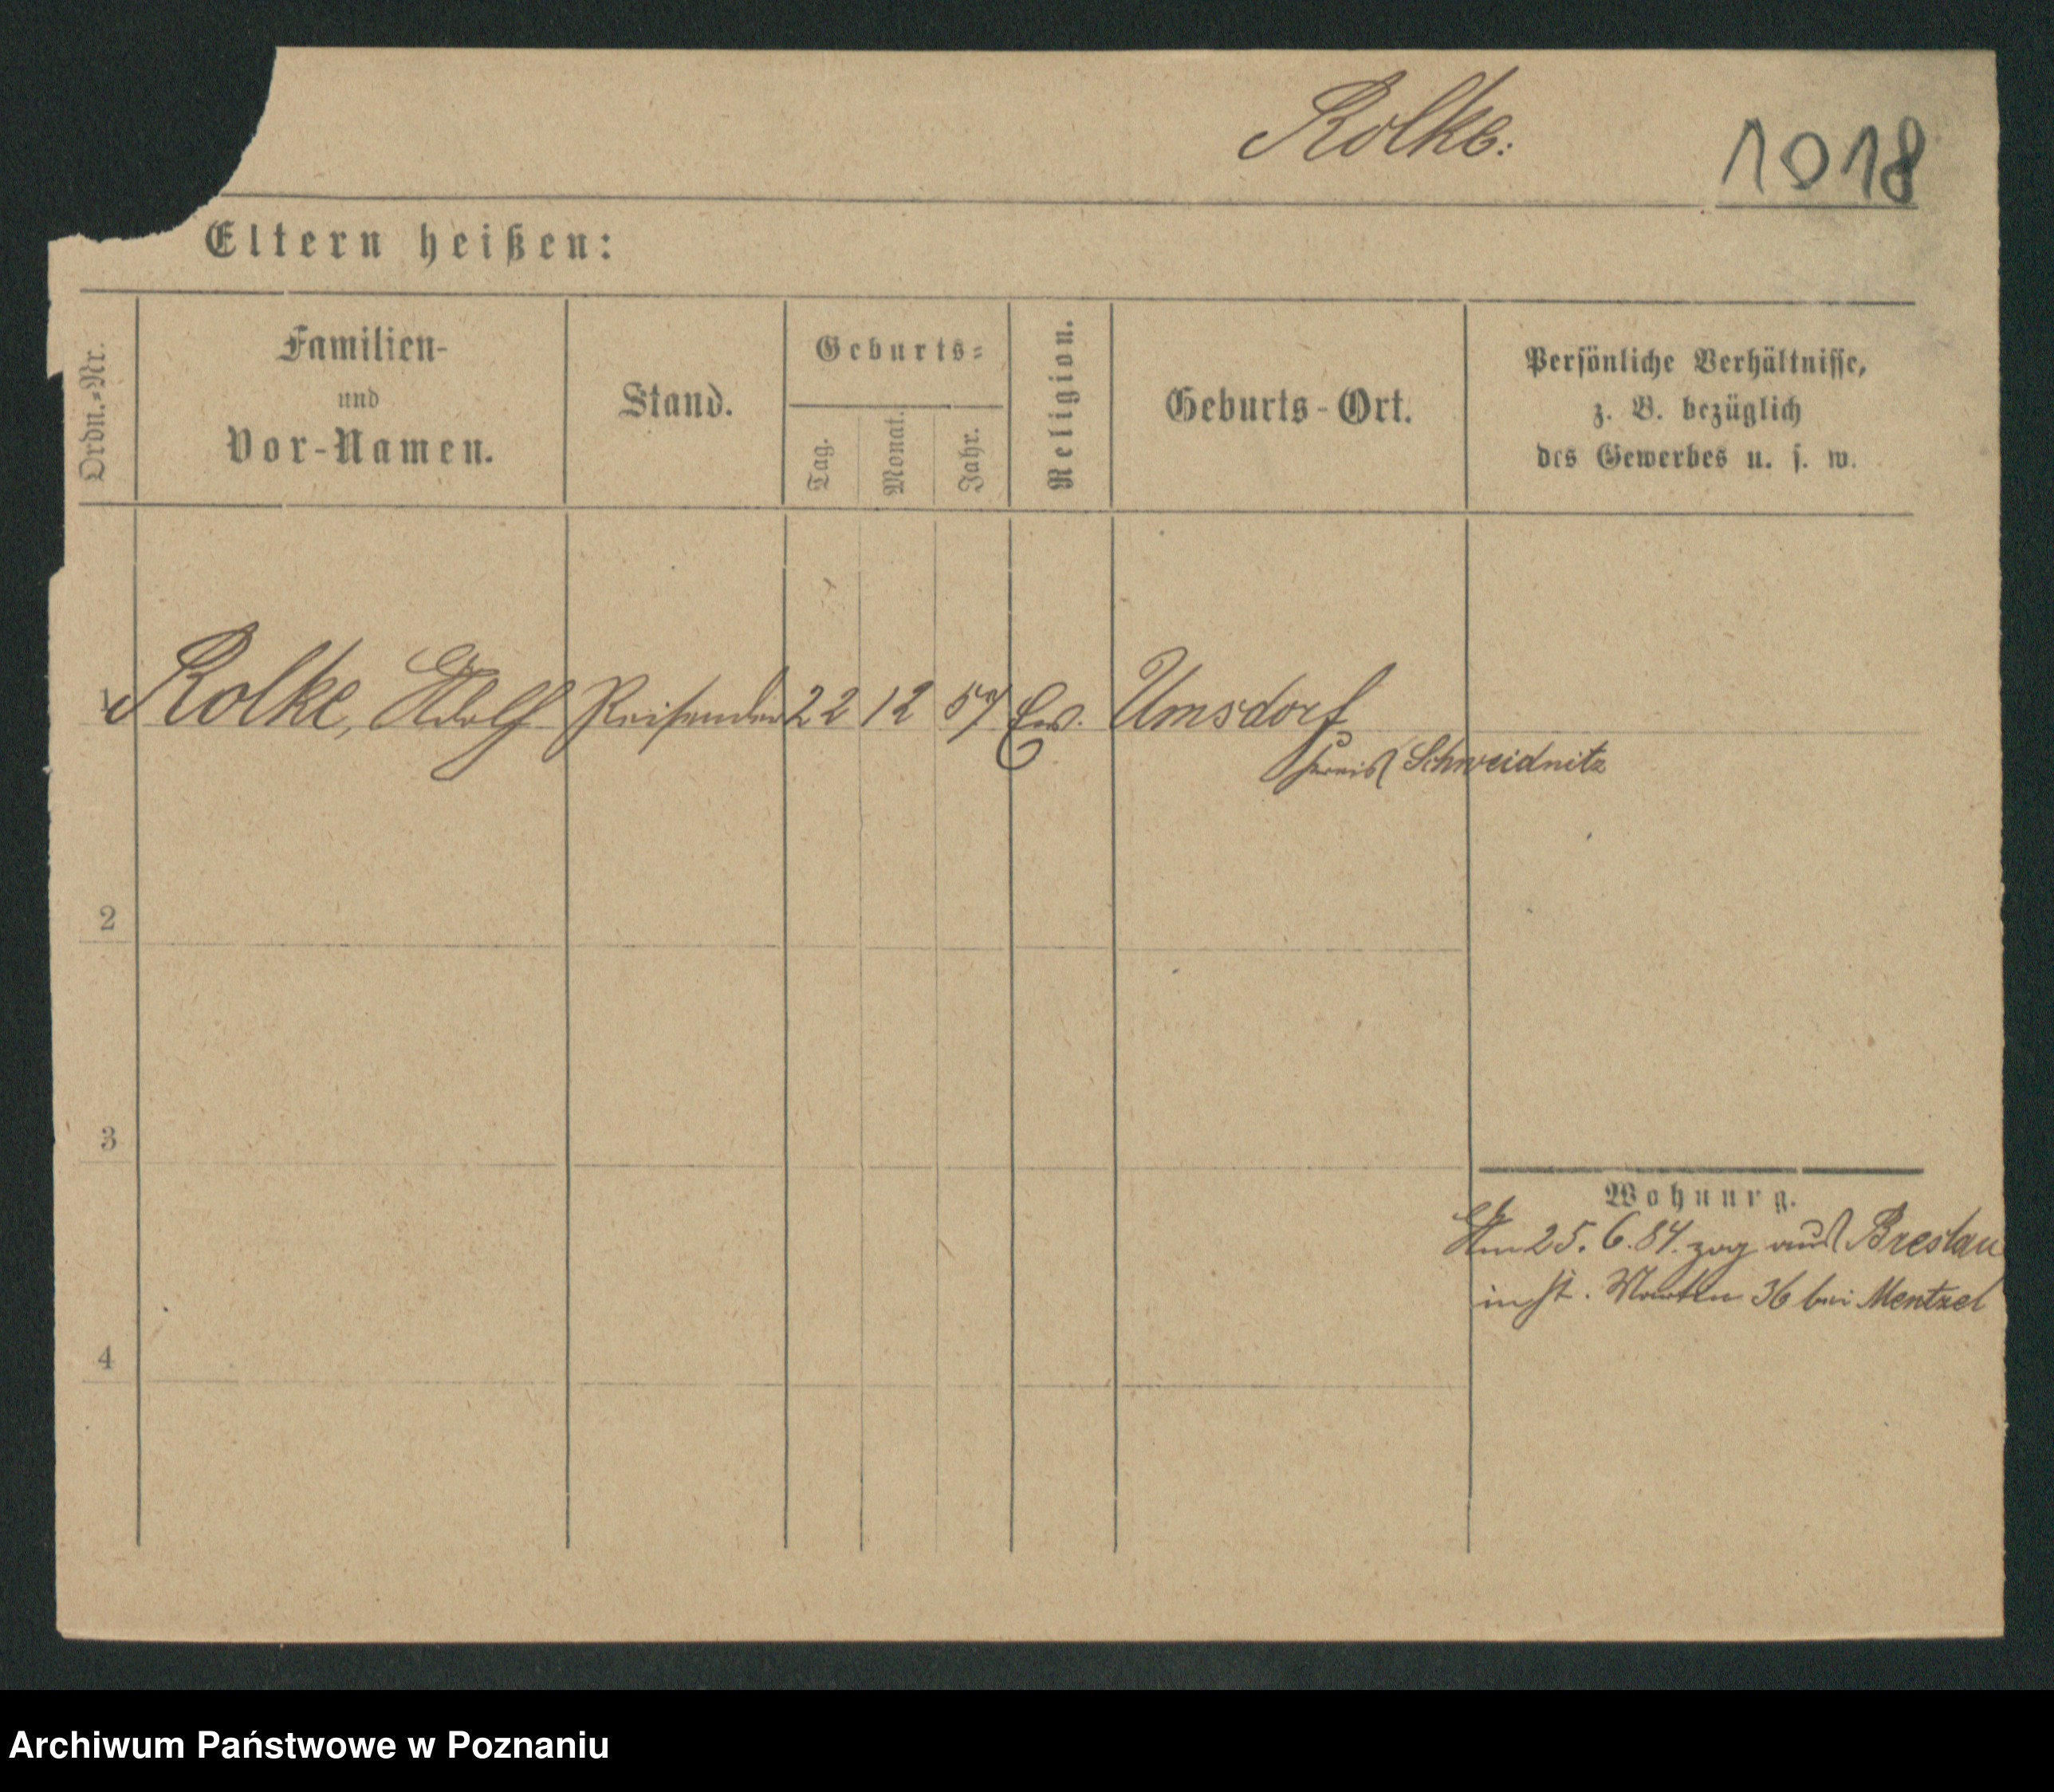 Rolke.
1018
Eltern heißen:
Ordn.-Nr.
Familien-
und
Vor-Namen.
Stand.
Geburts-
Tag.
Monat.
Jahr.
Religion.
Geburts-Ort.
Persönliche Verhältnisse,
z. B. bezüglich
des Gewerbes u. s. w.
1 Rolke, Adolf Reisender 22 12 57 Ev. Umsdorf
Kreis Schweidnitz
2
3
4
Wohnung.
Am 25. 6. 84. zog aus Breslau
in St. Martin 36 bei Mentzel
Archiwum Państwowe w Poznaniu